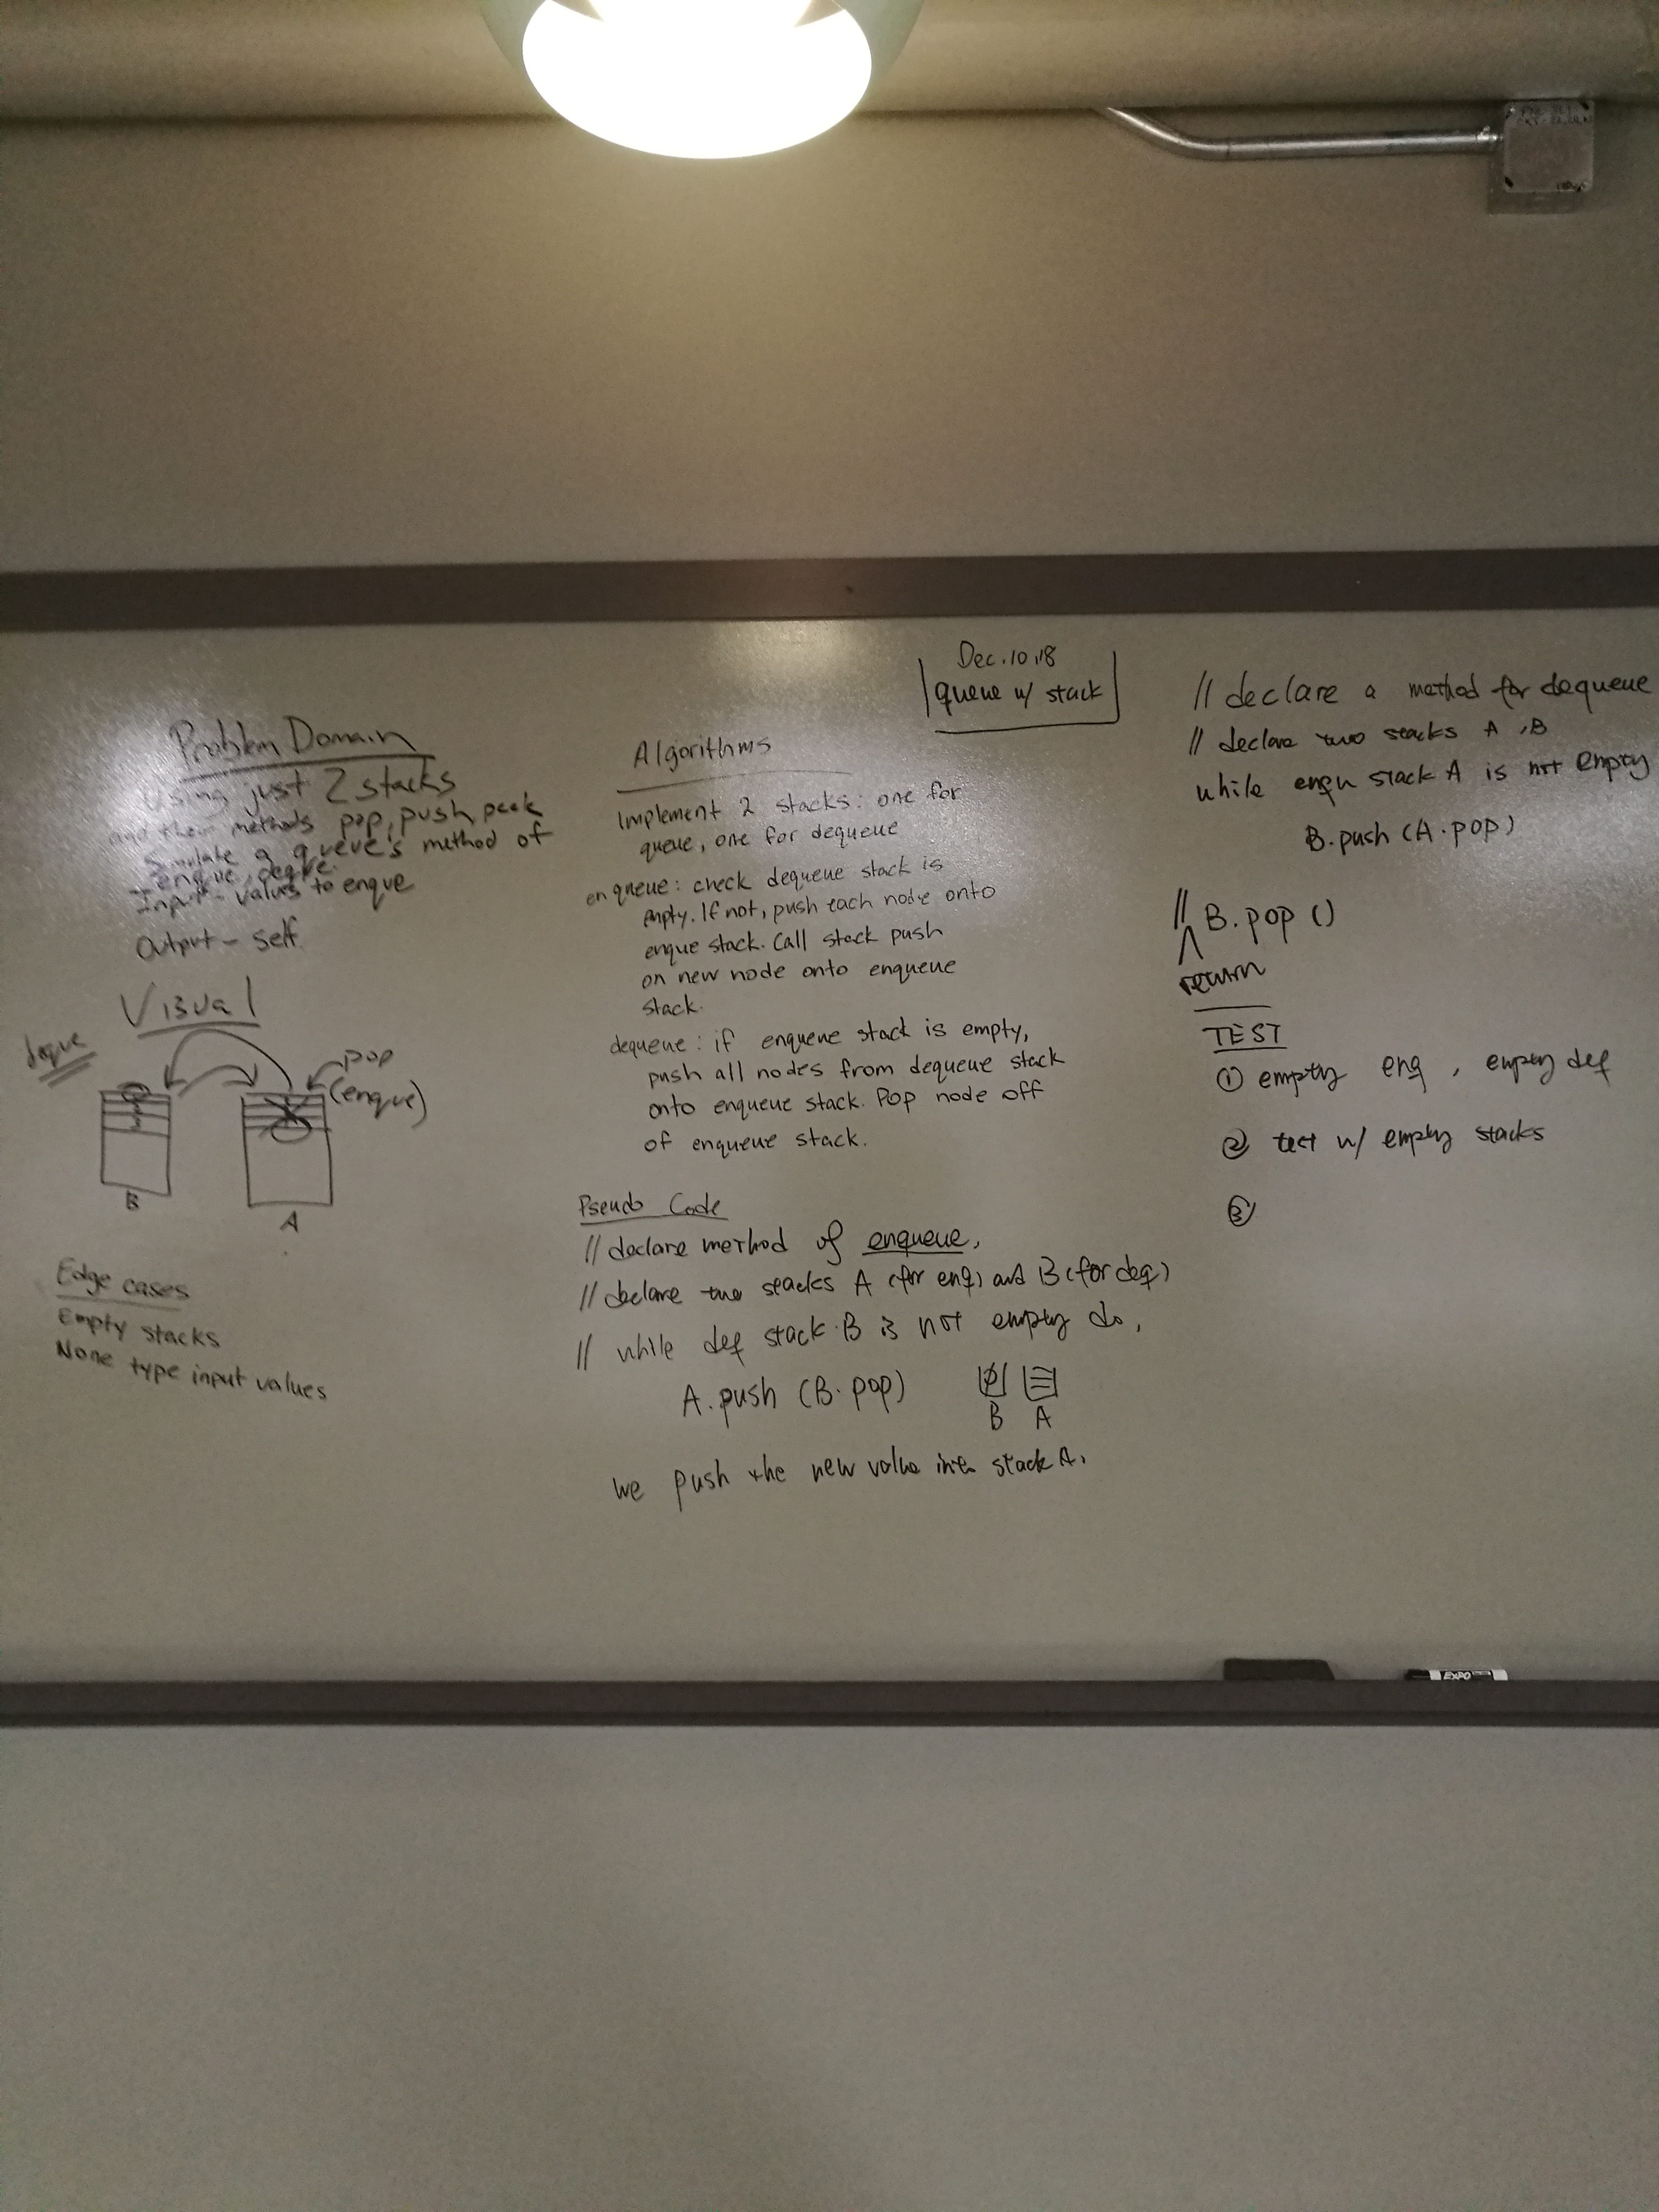 Dec.10,18
queue w/ stack
Problem Domain
Using just 2 stacks
and their methods pop, push peek
Simulate a queue's method of
enque, deque.
Input - values to enque
Output - self.
Visual
deque
pop
(enque)
B
A
Edge cases
Empty stacks
None type input values
Algorithms
Implement 2 stacks: one for
queue, one for dequeue
enqueue: check dequeue stack is
empty. If not, push each node onto
enque stack. Call stack push
on new node onto enqueue
stack.
dequeue: if enqueue stack is empty,
push all nodes from dequeue stack
onto enqueue stack. Pop node off
of enqueue stack.
Pseudo Code
// declare method of enqueue,
// declare two stacks A (for enq) and B (for deq)
// while deq stack B is not empty do,
A.push (B.pop)
B A
we push the new value into stack A.
// declare a method for dequeue
// declare two stacks A, B
while enqu stack A is not empty
B.push (A.pop)
// B.pop ()
return
TEST
① empty enq, empty deq
② test w/ empty stacks
③
EXPO